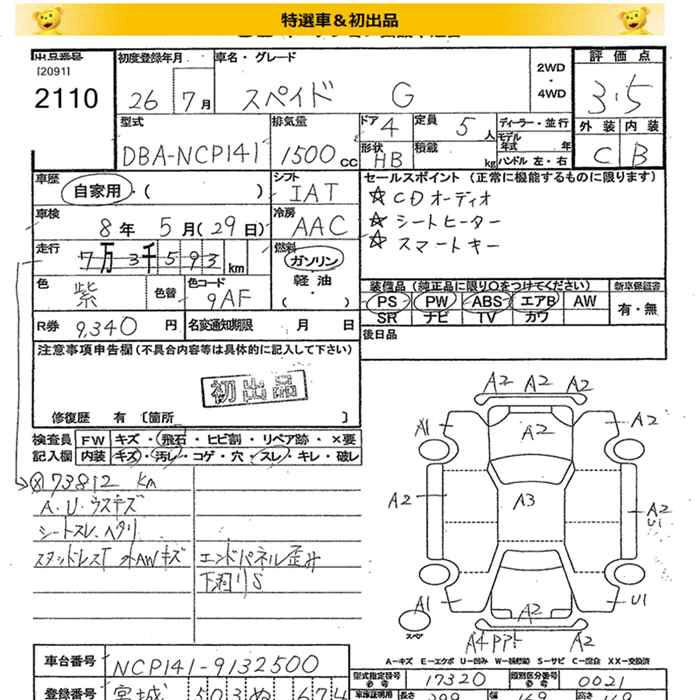 特選車＆初出品
出品番号
[2091]
2110
初度登録年月
26 7月
車名・グレード
スペイド G
2WD
・
4WD
評価点
3.5
外装 内装
C B
型式
DBA-NCP141
排気量
1500cc
ドア 4
定員 5人
形状 HB
積載 kg
ディーラー・並行
モデル年式 年
ハンドル 左・右
車歴
自家用・( )
シフト
IAT
車検
8年 5月(29日)
冷房
AAC
走行
7万3千593km
燃料
ガソリン
軽油
・( )
色
紫
色替
色コード
9AF
R券 9,340円
名変通知期限 月 日
セールスポイント（正常に機能するものに限ります）
☆CDオーディオ
☆シートヒーター
☆スマートキー
装備品（純正品に限り○をつけてください） 新車保証書
PS PW ABS エアB AW 有・無
SR ナビ TV カワ
後日品
注意事項申告欄（不具合内容等は具体的に記入して下さい）
初出品
修復歴 有〔箇所 〕
検査員 FW キズ・飛石・ヒビ割・リペア跡・×要
記入欄 内装 キズ・汚レ・コゲ・穴・スレ・キレ・破レ
73812 km
A.U.ウスキズ
シートスレ.ヘタリ
スタッドレスT 外AWキズ
エンドパネル歪み
下廻りS
A2 A2 A2
A1 A2 A2
A2 A3 A2
U1
A1 A2 U1
スペア
A4 A2
A－キズ E－エクボ U－凹み W－補修跡 S－サビ C－腐食 XX－交換済
車台番号 NCP141-9132500
型式指定番号 参考 17320
類別区分番号 参考 0021
登録番号 宮城 503 ぬ 674
車庫証明用 長さ 399 幅 169